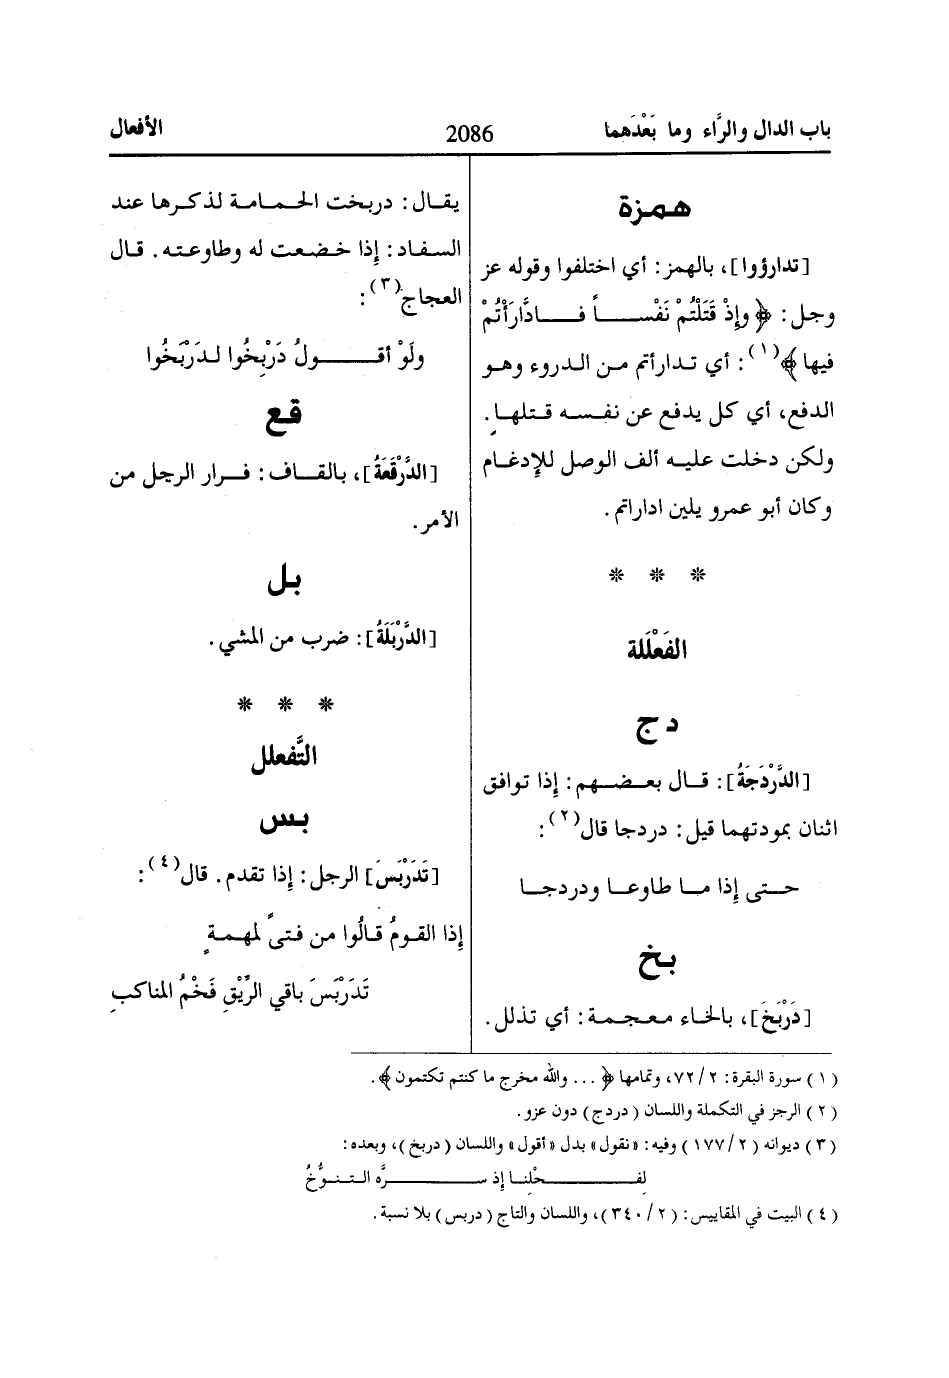 باب الدال والرَّاء وما بَعْدَهما
2086
الأفعال
همزة
[تدارؤوا]، بالهمز: أي اختلفوا وقوله عز
وجل: ﴿وإِذْ قَتَلْتُمْ نَفْساً فادَّارَأْتُمْ
فيها﴾(١): أي تدارأتم من الدروء وهو
الدفع، أي كل يدفع عن نفسه قتلها.
ولكن دخلت عليه ألف الوصل للإدغام
وكان أبو عمرو يلين اداراتم.
* * *
الفَعْلَلة
دج
[الدَّرْدَجَةُ]: قال بعضهم: إذا توافق
اثنان بمودتهما قيل: دردجا قال(٢):
حتى إذا ما طاوعا ودردجا
بخ
[دَرْبَخَ]، بالخاء معجمة: أي تذلل.
يقال: دربخت الحمامة لذكرها عند
السفاد: إذا خضعت له وطاوعته. قال
العجاج(٣):
ولَوْ أقولُ دَرْبِخُوا لدَرْبَخُوا
قع
[الدَّرْقَعَةُ]، بالقاف: فرار الرجل من
الأمر.
بل
[الدَّرْبَلَةُ]: ضرب من المشي.
* * *
التَّفعلل
بس
[تَدَرْبَسَ] الرجل: إذا تقدم. قال(٤):
إذا القومُ قالُوا من فتىً لمهمةٍ
تَدَرْبَسَ باقي الرِّيْقِ فَخْمُ المناكبِ
(١) سورة البقرة: ٢/ ٧٢، وتمامها ﴿... والله مخرج ما كنتم تكتمون﴾.
(٢) الرجز في التكملة واللسان (دردج) دون عزو.
(٣) ديوانه (٢/ ١٧٧) وفيه: «نقول» بدل «أقول» واللسان (دربخ)، وبعده:
لِفحْلِنا إذ سرَّه التنوُّخُ
(٤) البيت في المقاييس: (٢/ ٣٤٠)، واللسان والتاج (دربس) بلا نسبة.